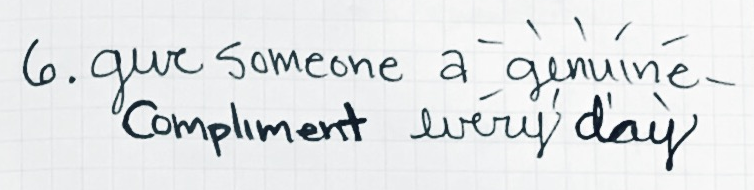 6. give someone a genuine
Compliment every day